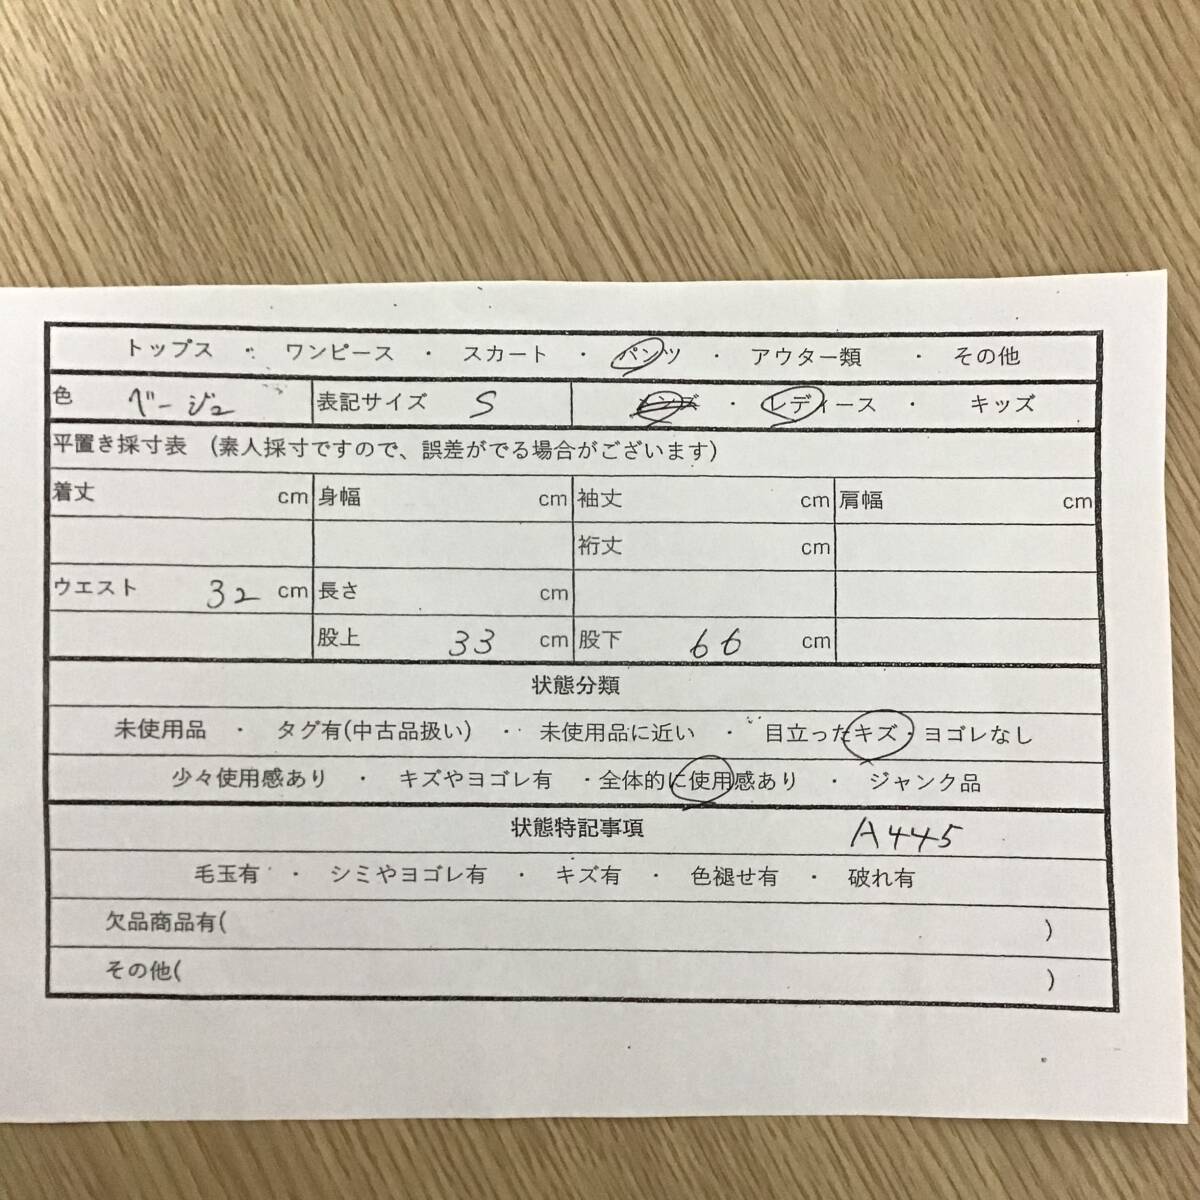 トップス ・ ワンピース ・ スカート ・ パンツ ・ アウター類 ・ その他
色 ベージュ 表記サイズ S メンズ ・ レディース ・ キッズ
平置き採寸表 (素人採寸ですので、誤差がでる場合がございます)
着丈 cm 身幅 cm 袖丈 cm 肩幅 cm
裄丈 cm
ウエスト 32 cm 長さ cm
股上 33 cm 股下 66 cm
状態分類
未使用品 ・ タグ有(中古品扱い) ・ 未使用品に近い ・ 目立ったキズ・ヨゴレなし
少々使用感あり ・ キズやヨゴレ有 ・全体的に使用感あり ・ ジャンク品
状態特記事項 A445
毛玉有 ・ シミやヨゴレ有 ・ キズ有 ・ 色褪せ有 ・ 破れ有
欠品商品有( )
その他( )